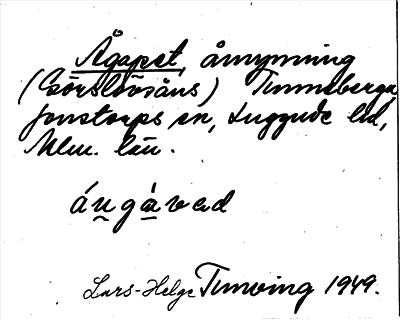 Ågapet, åmynning
(Görslövsåns) Tunneberga,
Jonstorps sn, Luggude hd,
Mlm. län.
áṉgàvad
Lars-Helge Tunving 1949.